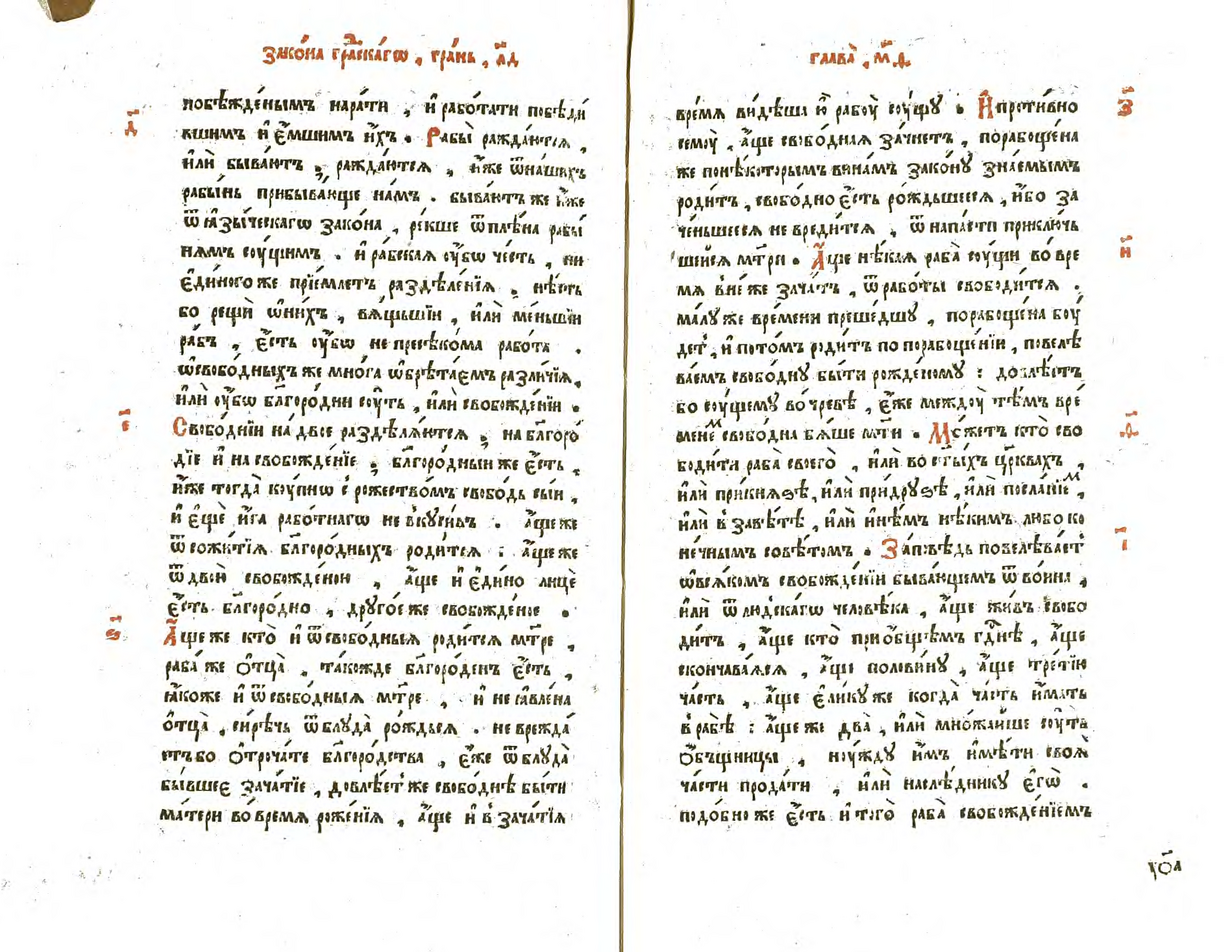 Зако́на гра́дскагѡ , гра́нь , л҃д
побѣжде́нымъ нара́ти , и҆ рабо́тати побѣди́
д҃
вшимъ и҆ є҆́мшимъ и҆́хъ . Рабы̀ ражда́ютсѧ ,
и҆лѝ быва́ютъ , ражда́ютсѧ , и҆̀же ѿ на́шихъ
рабы́нь прибыва́юще на́мъ . быва́ютъ же и҆̀же
ѿ ꙗ҆зы́ческагѡ зако́на , ре́кше ѿ плѣ́на рабы́
нѧмъ соу́щимъ . и҆ ра́бскаѧ оу҆́бѡ че́сть , ни
є҆ди́ногоже прїе́млетъ раздѣле́нїѧ . нѣ́сть
бо рещѝ ѡ҆ ни́хъ , вѧ́щьшїи , и҆лѝ ме́ньшїи
ра́бъ , є҆́сть оу҆́бѡ не пресѣко́ма рабо́та .
ѡ҆ свобо́дныхъ же мно́га ѡ҆брѣта́емъ разли́чїѧ ,
и҆лѝ оу҆́бѡ бл҃горо́дни соу́ть , и҆лѝ свобожде́нїи .
є҃
Свобо́днїи на́ двое раздѣлѧ́ютсѧ , на бл҃горо́
дїе и҆ на свобожде́нїе , бл҃горо́дныи же є҆́сть ,
и҆́же тогда̀ коу́пнѡ с рожество́мъ свобо́дь сы́и ,
и҆ є҆щѐ и҆́га рабо́тнагѡ не вкуси́въ . а҆́ще же
ѿ сожи́тїѧ бл҃горо́дныхъ роди́тсѧ : а҆́ще же
ѿ двою̀ свобожде́ною , а҆́ще и҆ є҆ди́но лицѐ
є҆́сть бл҃горо́дно , друго́е же свобожде́ное .
ѕ҃
А҆́ще же кто̀ и҆ ѿ свобо́дныѧ роди́тсѧ мт҃ре ,
раба́ же ѻ҆тца̀ , та́кожде бл҃горо́денъ є҆́сть ,
ꙗ҆́коже и҆ ѿ свобо́дныѧ мт҃ре , и҆ не ꙗ҆вле́на
ѻ҆тца̀ , си́рѣчь ѿ блуда̀ ро́ждьсѧ . не врежда́
етъ бо ѻ҆троча́те бл҃горо́дства , є҆́же ѿ блуда̀
бы́вшеє зача́тїе , довлѣ́етъ же свобо́днѣ бы́ти
ма́тери во вре́мѧ роже́нїѧ , а҆́ще и҆ в зача́тїѧ
глава̀ , м҃ѳ .
вре́мѧ ви́дѣша ю҆̀ рабо́у соу́щу . И҆ проти́вно
з҃
семоу̀ , а҆́ще свобо́днаѧ зачне́тъ , порабоще́на
же по нѣ́которымъ вина́мъ зако́ну зна́емымъ
роди́тъ , свобо́дно є҆́сть ро́ждьшеесѧ , и҆́бо за
че́ньшеесѧ не вреди́тсѧ , ѿ напа́сти приклю́чь
шейсѧ мт҃ри . А҆́ще нѣ́каѧ раба̀ соу́щи во вре́
и҃
мѧ в не́же зача́тъ , ѿ рабо́ты свободи́тсѧ .
ма́лу же вре́мени преше́дшу , порабоще́на боу́
детъ , и҆ пото́мъ роди́тъ по порабоще́нїи , повелѣ
ва́емъ свобо́дну бы́ти рожде́ному : довлѣ́етъ
бо соу́щему во чре́вѣ , є҆́же между̀ тѣ́мъ вре́
ѳ҃
менемъ свобо́дна бѧ́ше мт҃и . Мо́жетъ кто̀ сво
боди́ти раба̀ своего̀ , и҆лѝ во ст҃ы́хъ цр҃квахъ ,
и҆лѝ при кнѧ́ѕѣ , и҆лѝ при дру́ѕѣ , и҆лѝ посла́нїемъ ,
и҆лѝ в завѣ́тѣ , и҆лѝ и҆нѣ́мъ нѣ́кимъ либо ко
і҃
не́чнымъ совѣ́томъ . За́повѣдь повелѣва́етъ
ѡ҆ всѧ́комъ свобожде́нїи быва́ющемъ ѿ во́ина ,
и҆лѝ ѿ людска́гѡ человѣ́ка , а҆́ще жи́въ свобо
ди́тъ , а҆́ще кто̀ приѻ҆́бщемъ гд҃нѣ , а҆́ще
сконча́ваѧсѧ , а҆́ще полови́ну , а҆́ще тре́тїю
ча́сть , а҆́ще є҆ли́ку же когда̀ ча́сть и҆́мать
в рабѣ̀ : а҆́ще же два̀ , и҆лѝ мно́жайше соу́ть
ѻ҆́бьщницы , ноу́жду и҆́мъ и҆мѣ́ти своѧ̀
ча́сти прода́ти , и҆лѝ наслѣ́днику є҆гѡ̀ .
подо́бно же є҆́сть и҆ того̀ раба̀ свобожде́нїемъ
уо҃а